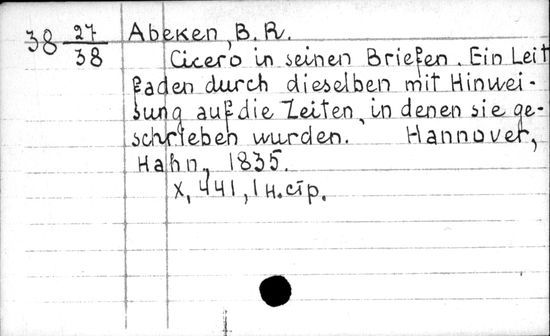 38 27/38 Abeken, B. R.
Cicero in seinen Briefen. Ein Leit
faden durch dieselben mit Hinwei-
sung auf die Zeiten, in denen sie ge-
schrieben wurden. Hannover,
Hahn, 1835.
X, 441, 1 н. стр.